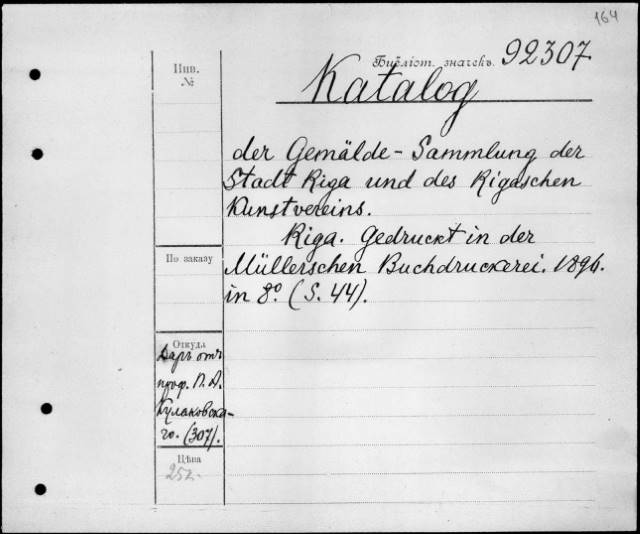 164
Библіот. значекъ. 92307
Инв.
№
Katalog
der Gemälde-Sammlung der
Stadt Riga und des Rigaschen
Kunstvereins.
Riga. Gedruckt in der
Müllerschen Buchdruckerei. 1896.
in 8º. (S. 44).
По заказу
Откуда
Даръ отъ
проф. П. А.
Кулаковска-
го. (307).
Цѣна